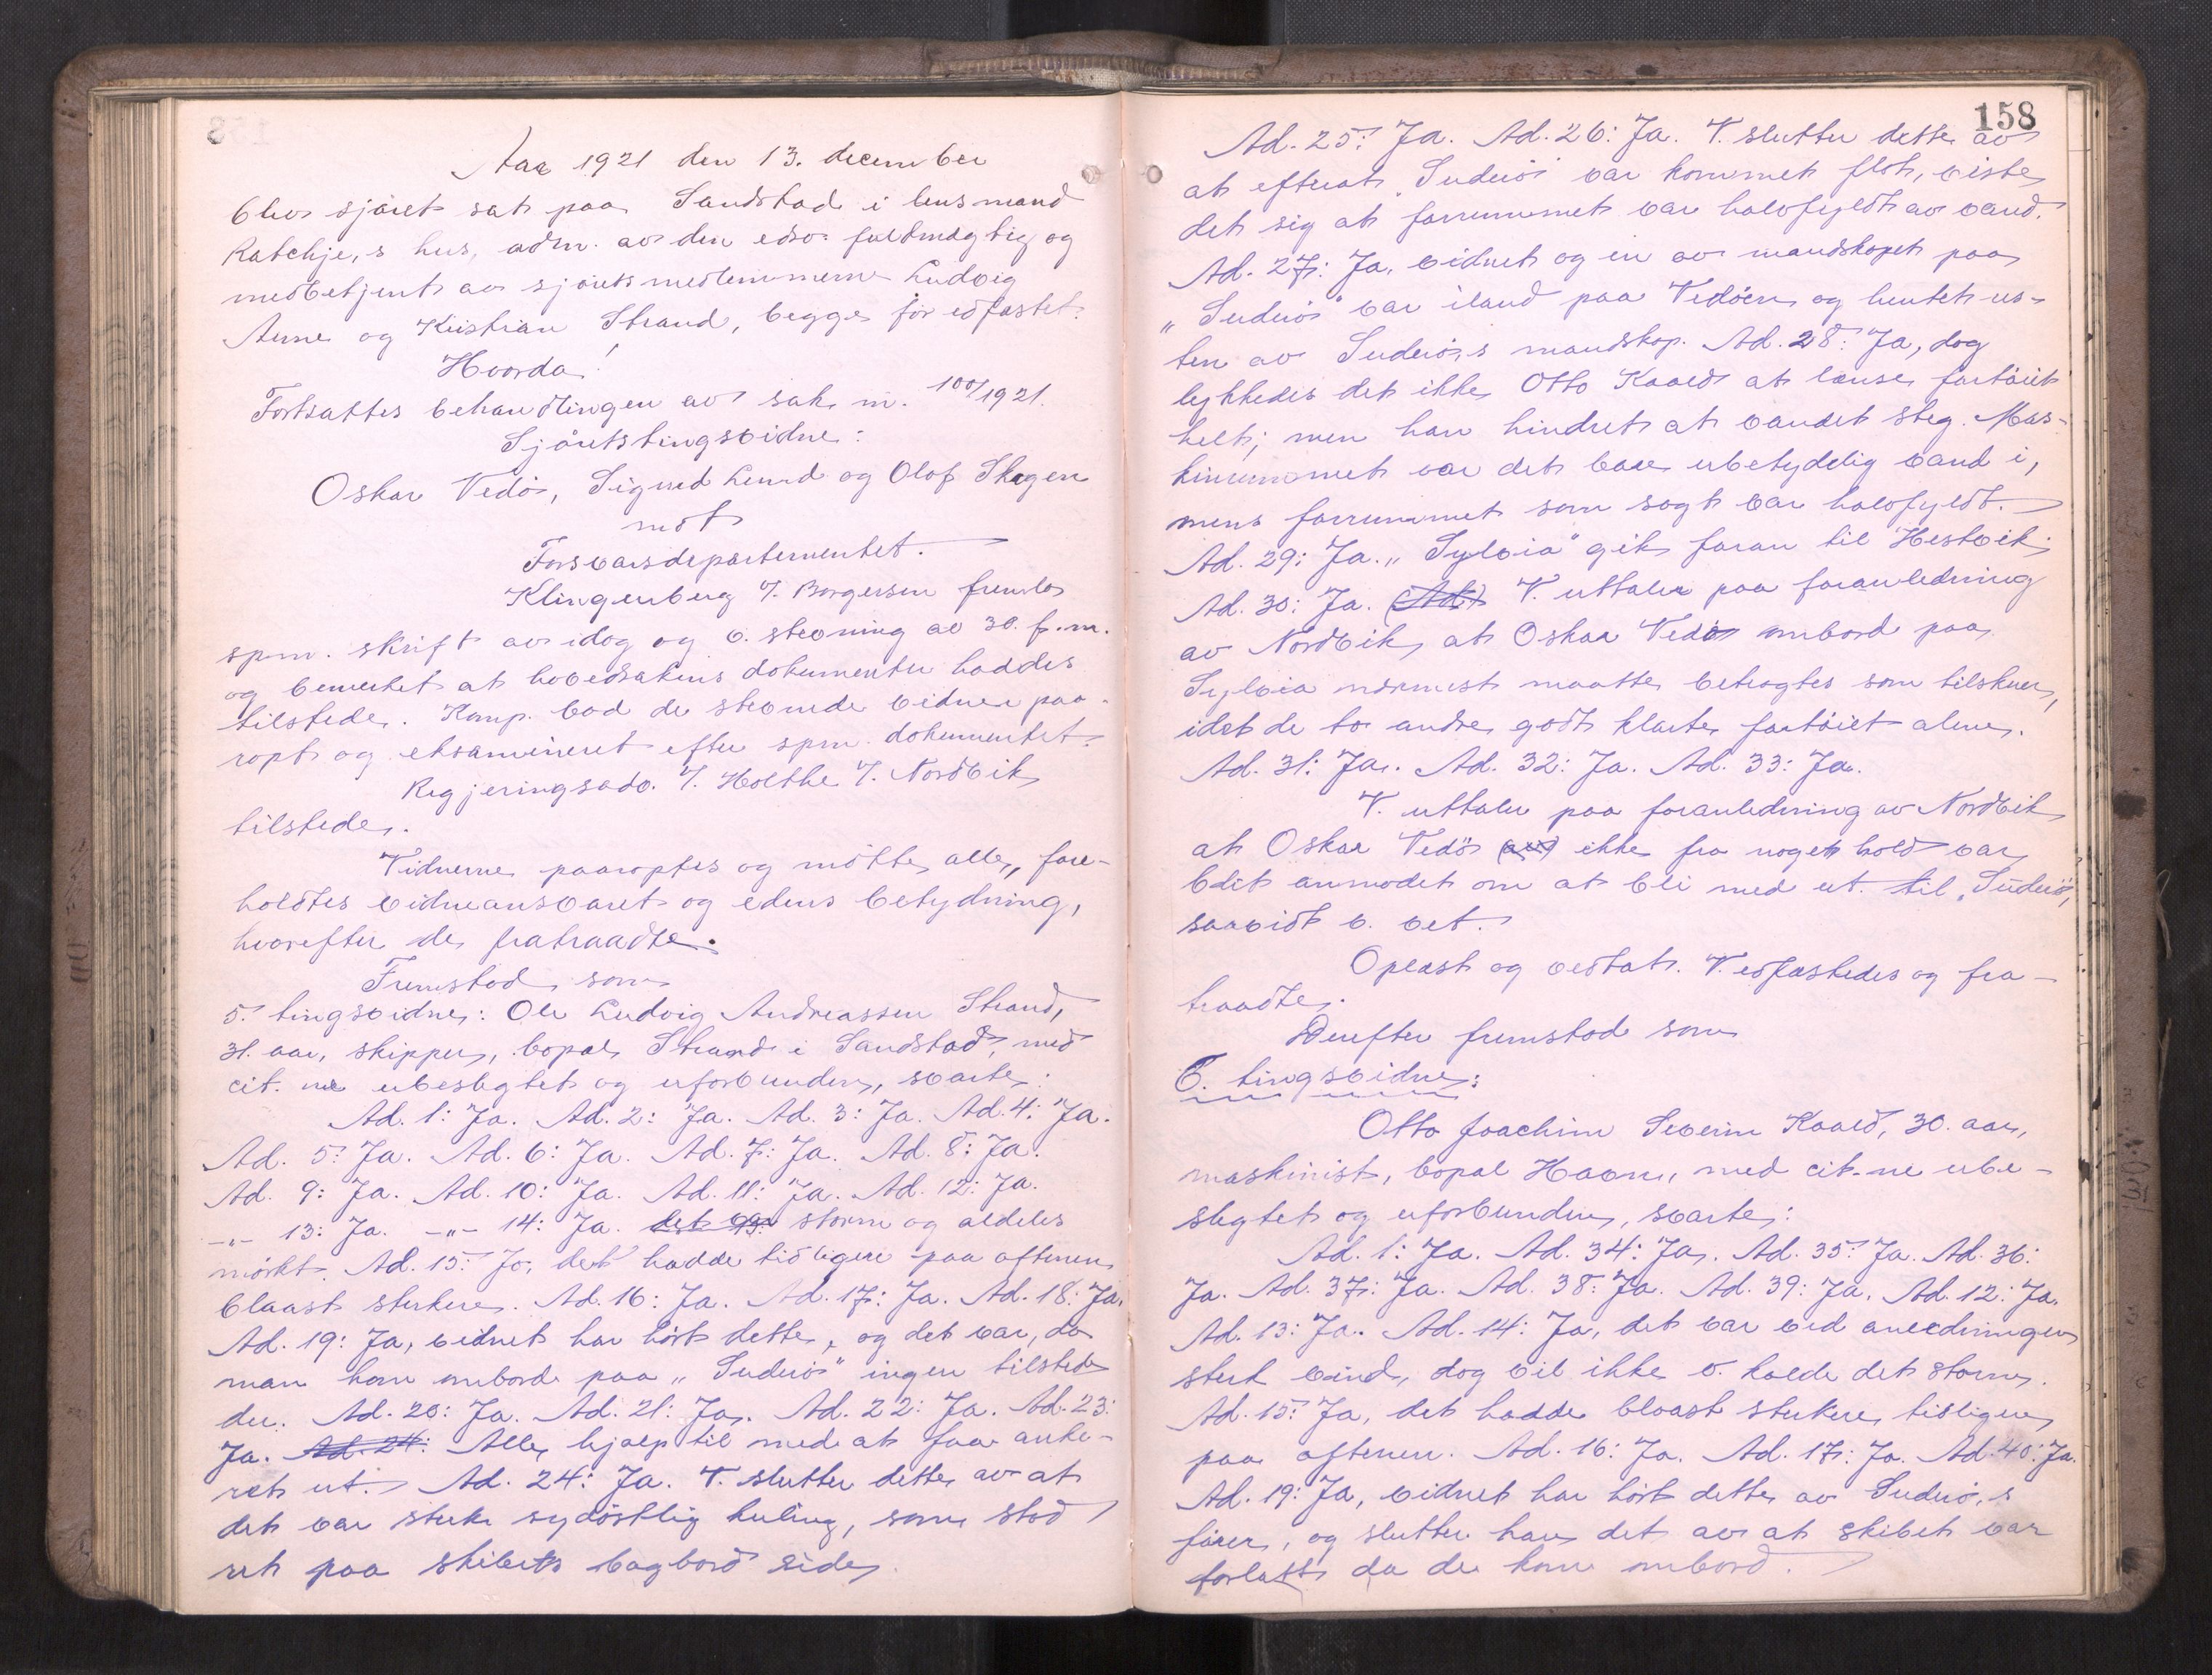 Aar 1921 den 13. december
blev sjøret sat paa Sandstad i lensmand
Ratchje,s hus, adm. av den edsv. fuldmægtig og
medbetjent av sjøretsmedlemmerne Ludvig
Aune og Kristian Strand, begge før edfæstet.
Hvorda!
Fortsattes behandlingen av sak nr. 100/1921.
Sjøretstingsvidne:
Oskar Vedø, Sigurd Lund og Olof Skagen
mot
Forsvarsdepartementet.
Klingenberg v/. Borgersen fremla
spm. skrift av idag og v. stevning av 30. f.m.
og bemerket at hovedsakens dokumenter haddes
tilstede. Komp. bad de stevnede vidner paa-
ropt og eksamineret efter spm. dokumentet.
Regjeringsadv. v/. Holthe v/. Nordvik
tilstede.
Vidnerne paaroptes og møtte alle, fore-
holdtes vidneansvaret og edens betydning,
hvorefter de fratraadte.
Fremstod som
5. tingsvidne: Ole Ludvig Andreassen Strand,
31. aar, skipper, bopæl Strand i Sandstad, med
cit. ne ubeslegtet og uforbunden, svarte:
Ad. 1: Ja. Ad. 2: Ja. Ad. 3: Ja. Ad. 4: Ja.
Ad. 5: Ja. Ad. 6: Ja. Ad. 7: Ja. Ad. 8: Ja.
Ad. 9: Ja. Ad. 10: Ja. Ad. 11: Ja. Ad. 12: Ja.
-"- 13: Ja. -"- 14: Ja. det var storm og aldeles
mørkt. Ad. 15: Jo, det hadde tidligere paa aftenen
blaast sterkere. Ad. 16: Ja. Ad. 17: Ja. Ad. 18: Ja.
Ad. 19: Ja, vidnet har hørt dette, og det var, da
man kom ombord paa "Suderø" ingen tilstede
der. Ad. 20: Ja. Ad. 21: Ja. Ad. 22: Ja. Ad. 23:
Ja. Ad. 24: Alle hjalp til med at faa anke-
ret ut. Ad. 24: Ja. V. slutter dette av at
det var sterk sydøstlig kuling, som stod
ret paa skibets bagbord side.
158
Ad. 25: Ja. Ad. 26: Ja. V. slutter dette av
at efterat "Suderø" var kommet flot, viste
det sig at forrummet var halvfyldt av vand.
Ad. 27: Ja, vidnet og en av mandskapet paa
"Suderø" var iland paa Vedøen og hentet res-
ten av Suderø,s mandskap. Ad. 28: Ja, dog
lykkedes det ikke Otto Kaald at lænse fartøiet
helt; men han hindret at vandet steg. Mas-
kinrummet var det bare ubetydelig vand i,
mens forrummet som sagt var halvfyldt.
Ad. 29: Ja. "Sylvia" gik foran til Hestvik.
Ad. 30: Ja. (Ad.) V. uttaler paa foranledning
av Nordvik, at Oskar Vedø ombord paa
Sylvia nærmest maatte betragtes som tilskuer,
idet de to andre godt klarte fartøiet alene.
Ad. 31: Ja. Ad. 32: Ja. Ad. 33: Ja.
V. uttaler paa foranledning av Nordvik
at Oskar Vedø (av) ikke fra noget hold var
blit anmodet om at bli med ut til "Suderø",
saavidt v. vet.
Oplæst og vedtat. V. edfæstedes og fra-
traadte.
Derefter fremstod som
6. tingsvidne:
Otto Joachim Severin Kaald, 30. aar,
maskinist, bopæl Havn, med cit-ne ube-
slegtet og uforbunden, svarte:
Ad. 1: Ja. Ad. 34: Ja. Ad. 35: Ja. Ad. 36:
Ja. Ad. 37: Ja. Ad. 38: Ja. Ad. 39: Ja. Ad. 12: Ja.
Ad. 13: Ja. Ad. 14: Ja, det var ved anledningen
sterk vind, dog vil ikke v. kalde det storm.
Ad. 15: Ja, det hadde blaast sterkere tidligere
paa aftenen. Ad. 16: Ja. Ad. 17: Ja. Ad. 40: Ja.
Ad. 19: Ja, vidnet har hørt dette av Suderø,s
fører, og slutter han det av at skibet var
forlatt da de kom ombord.